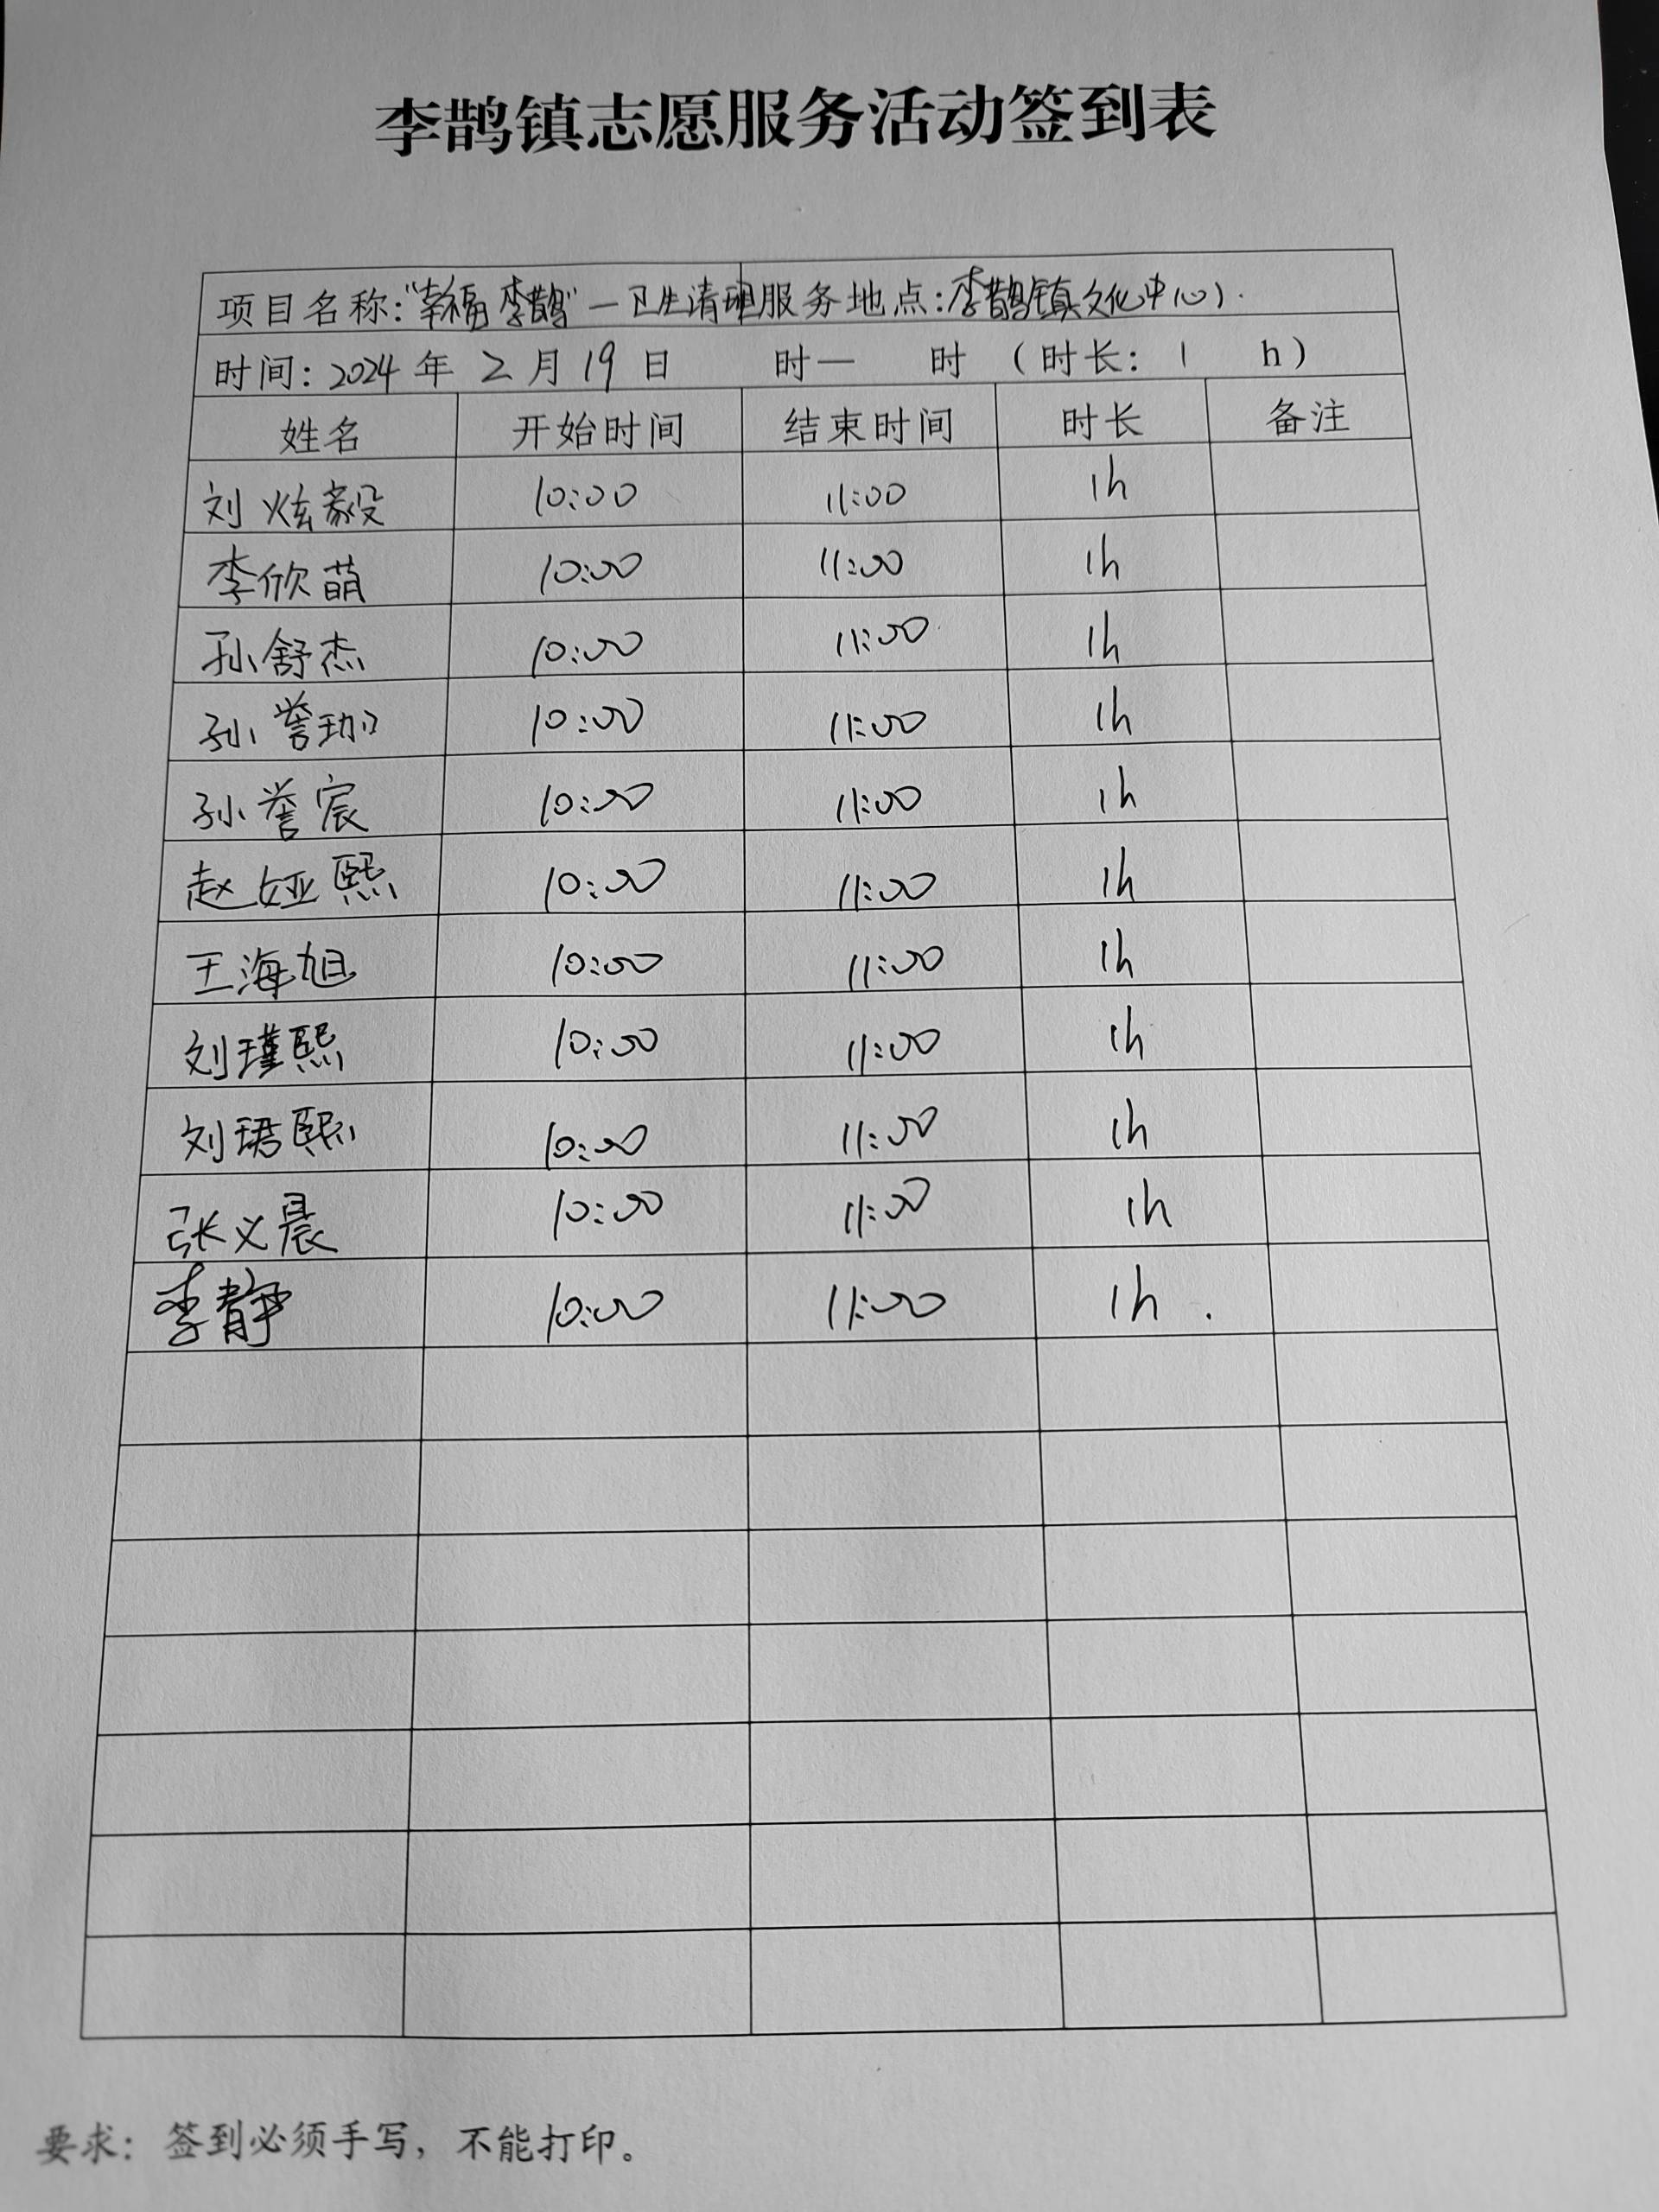 李鹊镇志愿服务活动签到表
项目名称:"幸福李鹊"—卫生清理 服务地点:李鹊镇文化中心.
时间: 2024 年 2 月 19 日 时— 时 (时长: 1 h)
姓名 开始时间 结束时间 时长 备注
刘炫毅 10:00 11:00 1h
李欣萌 10:00 11:00 1h
孙舒杰 10:00 11:00 1h
孙誉珈 10:00 11:00 1h
孙誉宸 10:00 11:00 1h
赵娅熙 10:00 11:00 1h
王海旭 10:00 11:00 1h
刘瑾熙 10:00 11:00 1h
刘珺熙 10:00 11:00 1h
张义晨 10:00 11:00 1h
李静 10:00 11:00 1h.
要求: 签到必须手写, 不能打印。